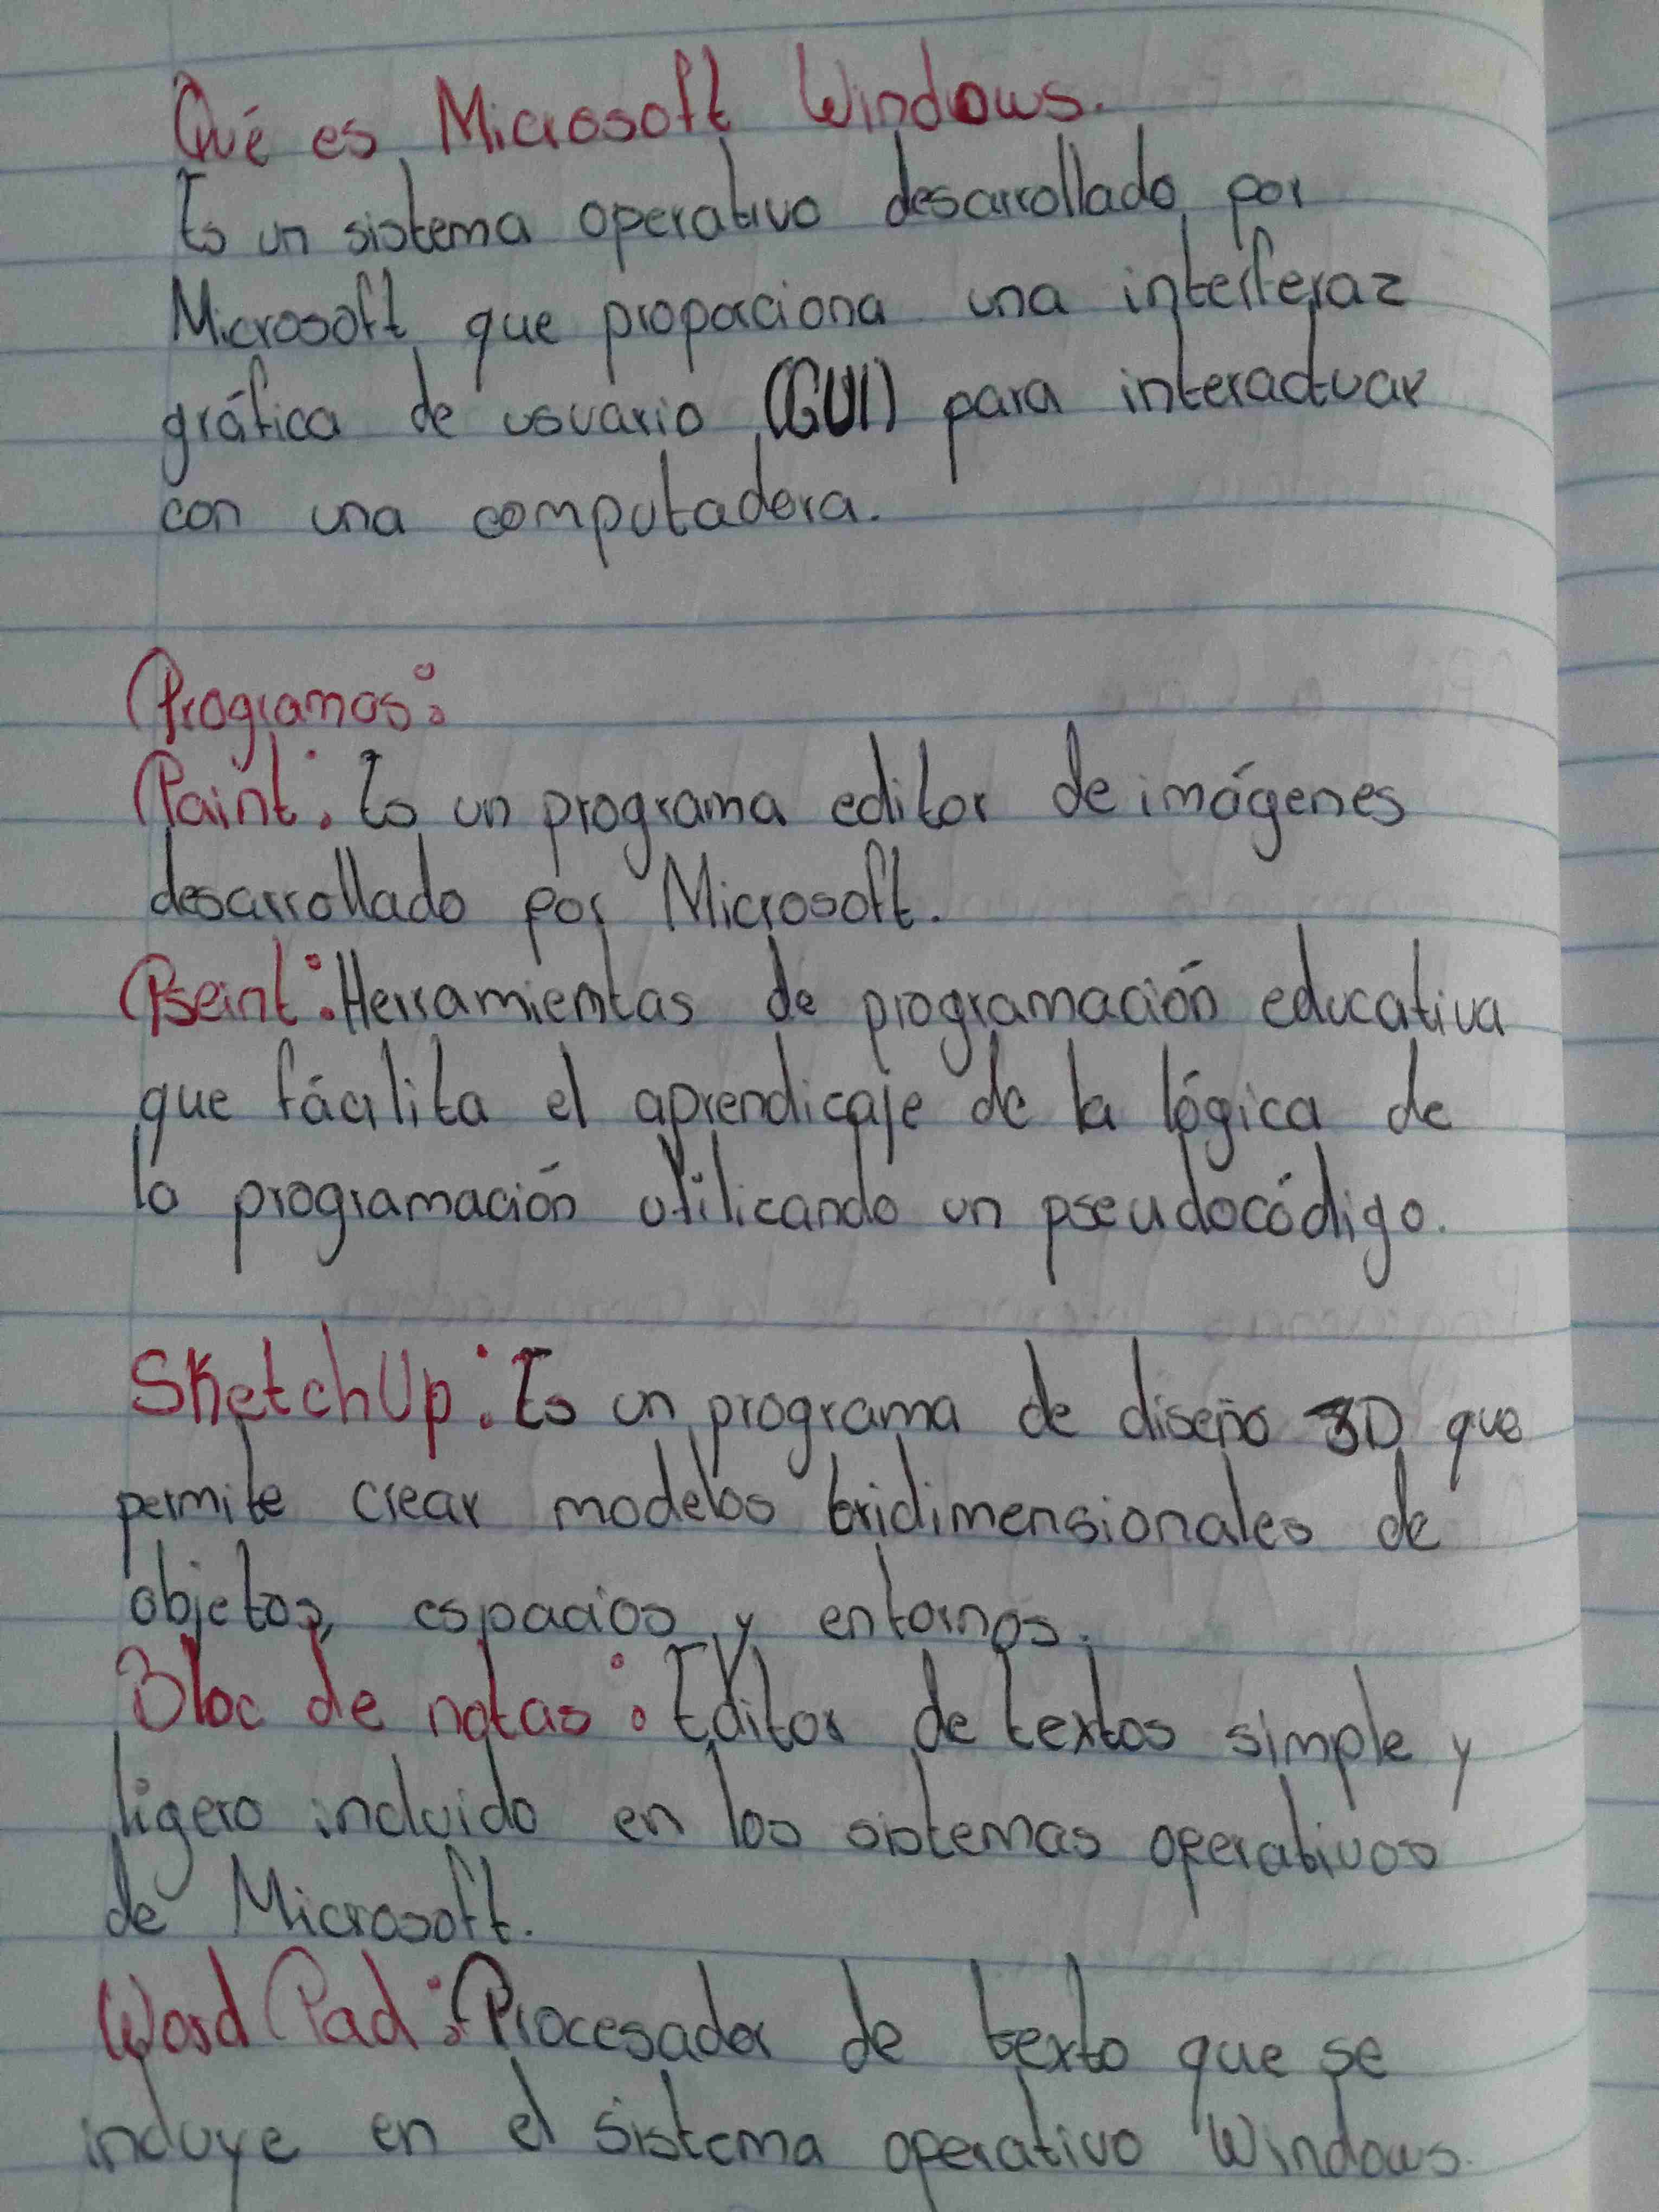 Qué es Microsoft Windows.
Es un sistema operativo desarrollado por
Microsoft que proporciona una interferaz
gráfica de usuario (GUI) para interactuar
con una computadora.
Programas:
Paint: Es un programa editor de imágenes
desarrollado por Microsoft.
Pseint: Herramientas de programación educativa
que fácilita el aprendicaje de la lógica de
la programación utilicando un pseudocódigo.
SketchUp: Es un programa de diseño 3D que
permite crear modelos tridimensionales de
objetos, espacios y entornos.
Bloc de notas: Editor de textos simple y
ligero incluido en los sistemas operativos
de Microsoft.
Word Pad: Procesador de texto que se
incluye en el sistema operativo Windows.